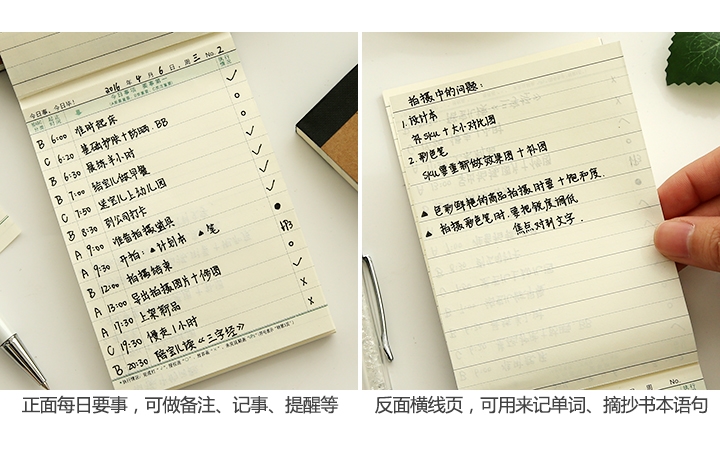 2016 年 4 月 6 日，周 三 No. 2
今日事，今日毕！
今日事项 要事第一
执行情况
事
B 6:00 准时起床
C 6:20 基础护肤+防晒、BB
B 6:30 晨练半小时
B 7:00 给宝儿做早餐
C 7:50 送宝儿上幼儿园
B 8:30 到公司打卡
A 9:00 准备拍摄道具
A 9:30 开拍：▲计划本 ▲笔
B 12:00 拍摄结束
A 13:00 导出拍摄图片+修图
A 17:30 上架新品
C 19:30 慢走1小时
B 20:30 陪宝儿读《三字经》
拍摄中的问题：
1. 设计本
补sku+大小对比图
2. 彩色笔
sku要重新做效果图+补图
▲ 色彩鲜艳的商品拍摄时要+饱和度.
▲ 拍摄彩色笔时，要把锐度调低
焦点对到文字.
周 No. 执行
正面每日要事，可做备注、记事、提醒等
反面横线页，可用来记单词、摘抄书本语句